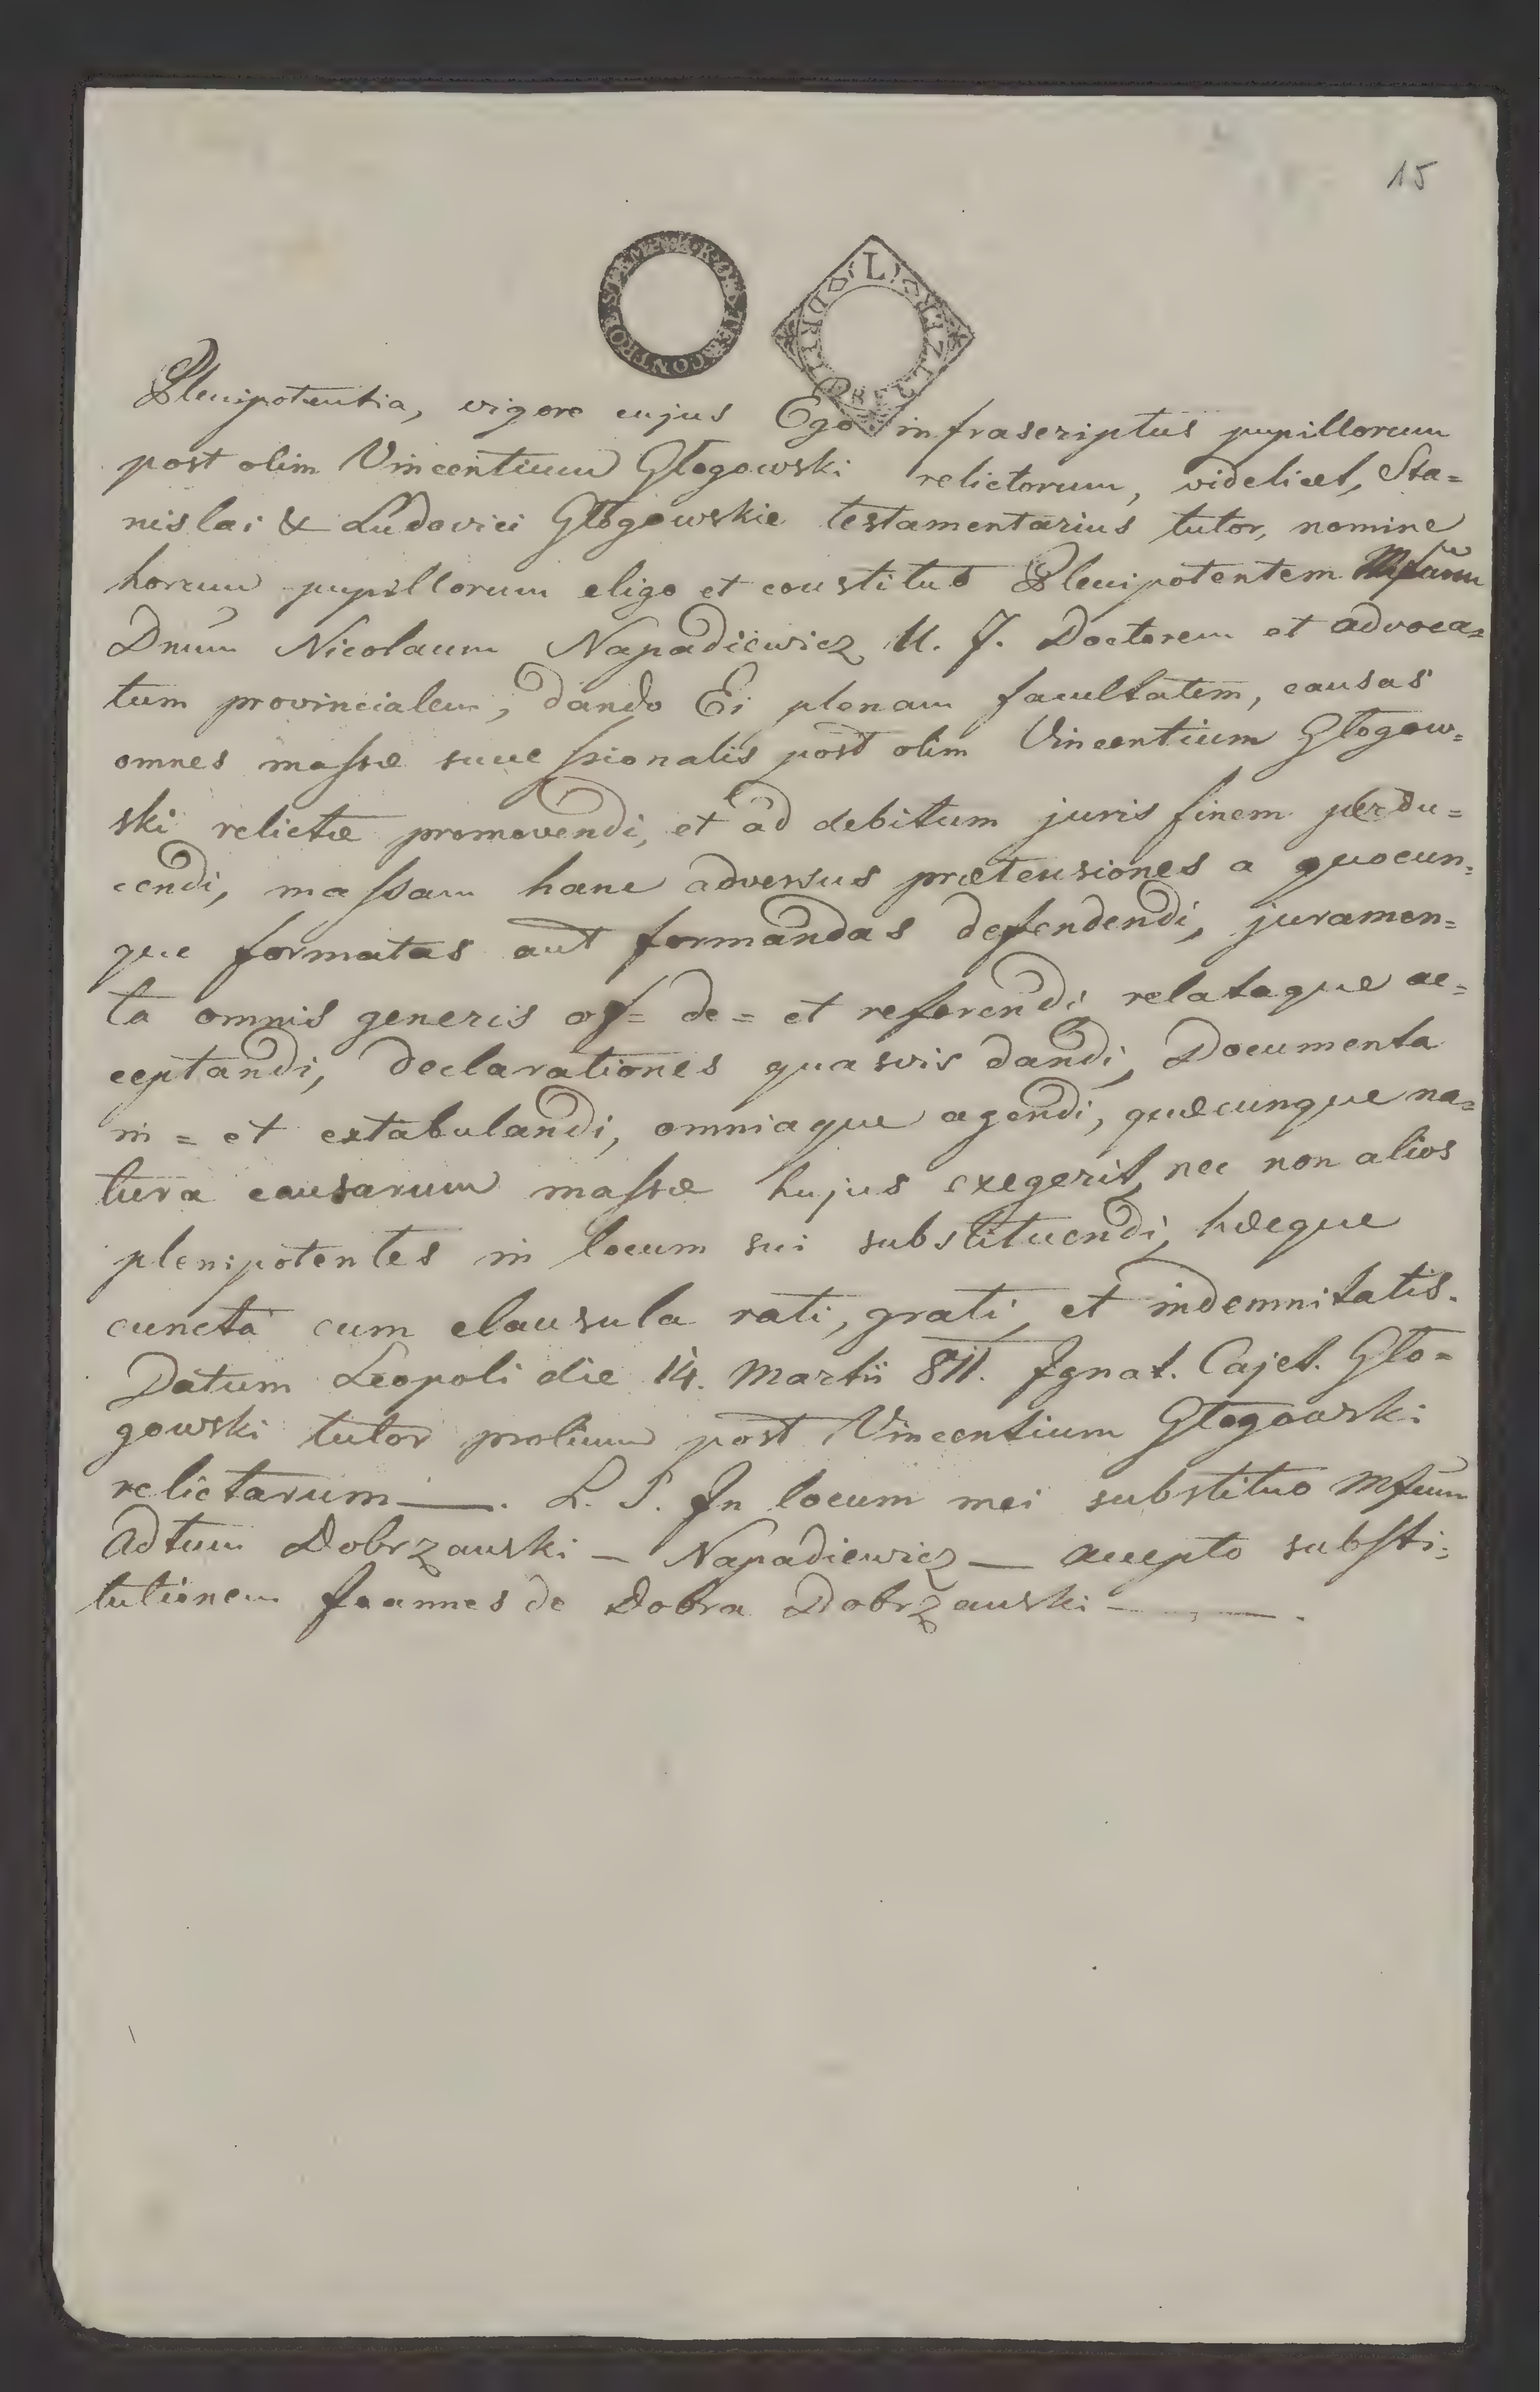 15
Plenipotentia, vigore cujus Ego infrascriptus pupillorum
post olim Vincentium Głogowski relictorum, videlicet, Sta=
nislai & Ludovici Głogowskie testamentarius tutor, nomine
horum pupillorum eligo et constituo Plenipotentem Mfcum
Dnum Nicolaum Napadiewicz U. J. Doctorem et advoca=
tum provincialem, dando Ei plenam facultatem, causas
omnes massæ successionalis post olim Vincentium Głogow=
ski relictæ promovendi, et ad debitum juris finem perdu=
cendi, massam hanc adversus prætensiones a quocun=
que formatas aut formandas defendendi, juramen=
ta omnis generis of= de= et referendi relataque ac=
ceptandi, declarationes quasvis dandi, Documenta
in= et extabulandi, omniaque agendi, quæcunque na=
tura causarum massæ hujus exegerit, nec non alios
plenipotentes in locum sui substituendi, hæcque
cuncta cum clausula rati, grati, et indemnitatis.
Datum Leopoli die 14. Martii 811. Ignat. Cajet. Gło=
gowski tutor prolium post Vincentium Głogowski
relictarum —. L. S. In locum mei substituo Mfcum
Adtum Dobrzanski — Napadiewicz — accepto substi=
tutionem Joannes de Dobra Dobrzanski — — .